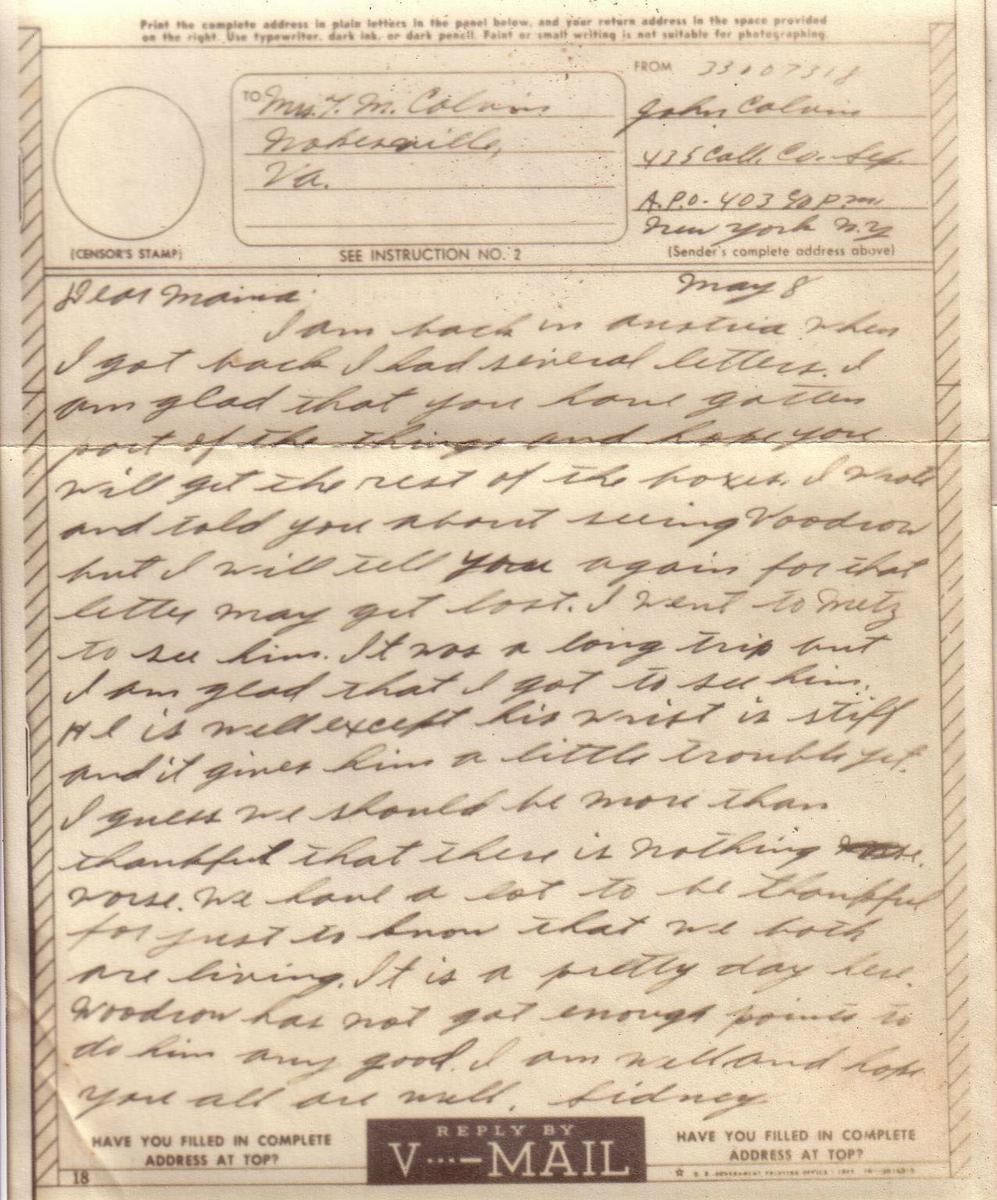 Print the complete address in plain letters in the panel below, and your return address in the space provided
on the right. Use typewriter, dark ink, or dark pencil. Faint or small writing is not suitable for photographing.
FROM 33007318
TO Mrs. T. M. Colvin
Nokesville,
Va.
John Colvin
435 Coll. Co. Sep.
A.P.O. 403 % P.M.
New York N.Y
(CENSOR'S STAMP)
SEE INSTRUCTION NO. 2
(Sender's complete address above)
Dear Mama: May 8
I am back in Austria when
I got back I had several letters. I
am glad that you have gotten
part of the things and hope you
will get the rest of the boxes. I wrote
and told you about seeing Woodrow
but I will tell you again for that
letter may get lost. I went to Metz
to see him. It was a long trip but
I am glad that I got to see him.
He is well except his wrist is stiff
and it gives him a little trouble yet.
I guess we should be more than
thankful that there is nothing
worse. We have a lot to be thankful
for just to know that we both
are living. It is a pretty day here.
Woodrow has not got enough points to
do him any good. I am well and hope
you all are well. Sidney
HAVE YOU FILLED IN COMPLETE
ADDRESS AT TOP?
REPLY BY
V···—MAIL
HAVE YOU FILLED IN COMPLETE
ADDRESS AT TOP?
18